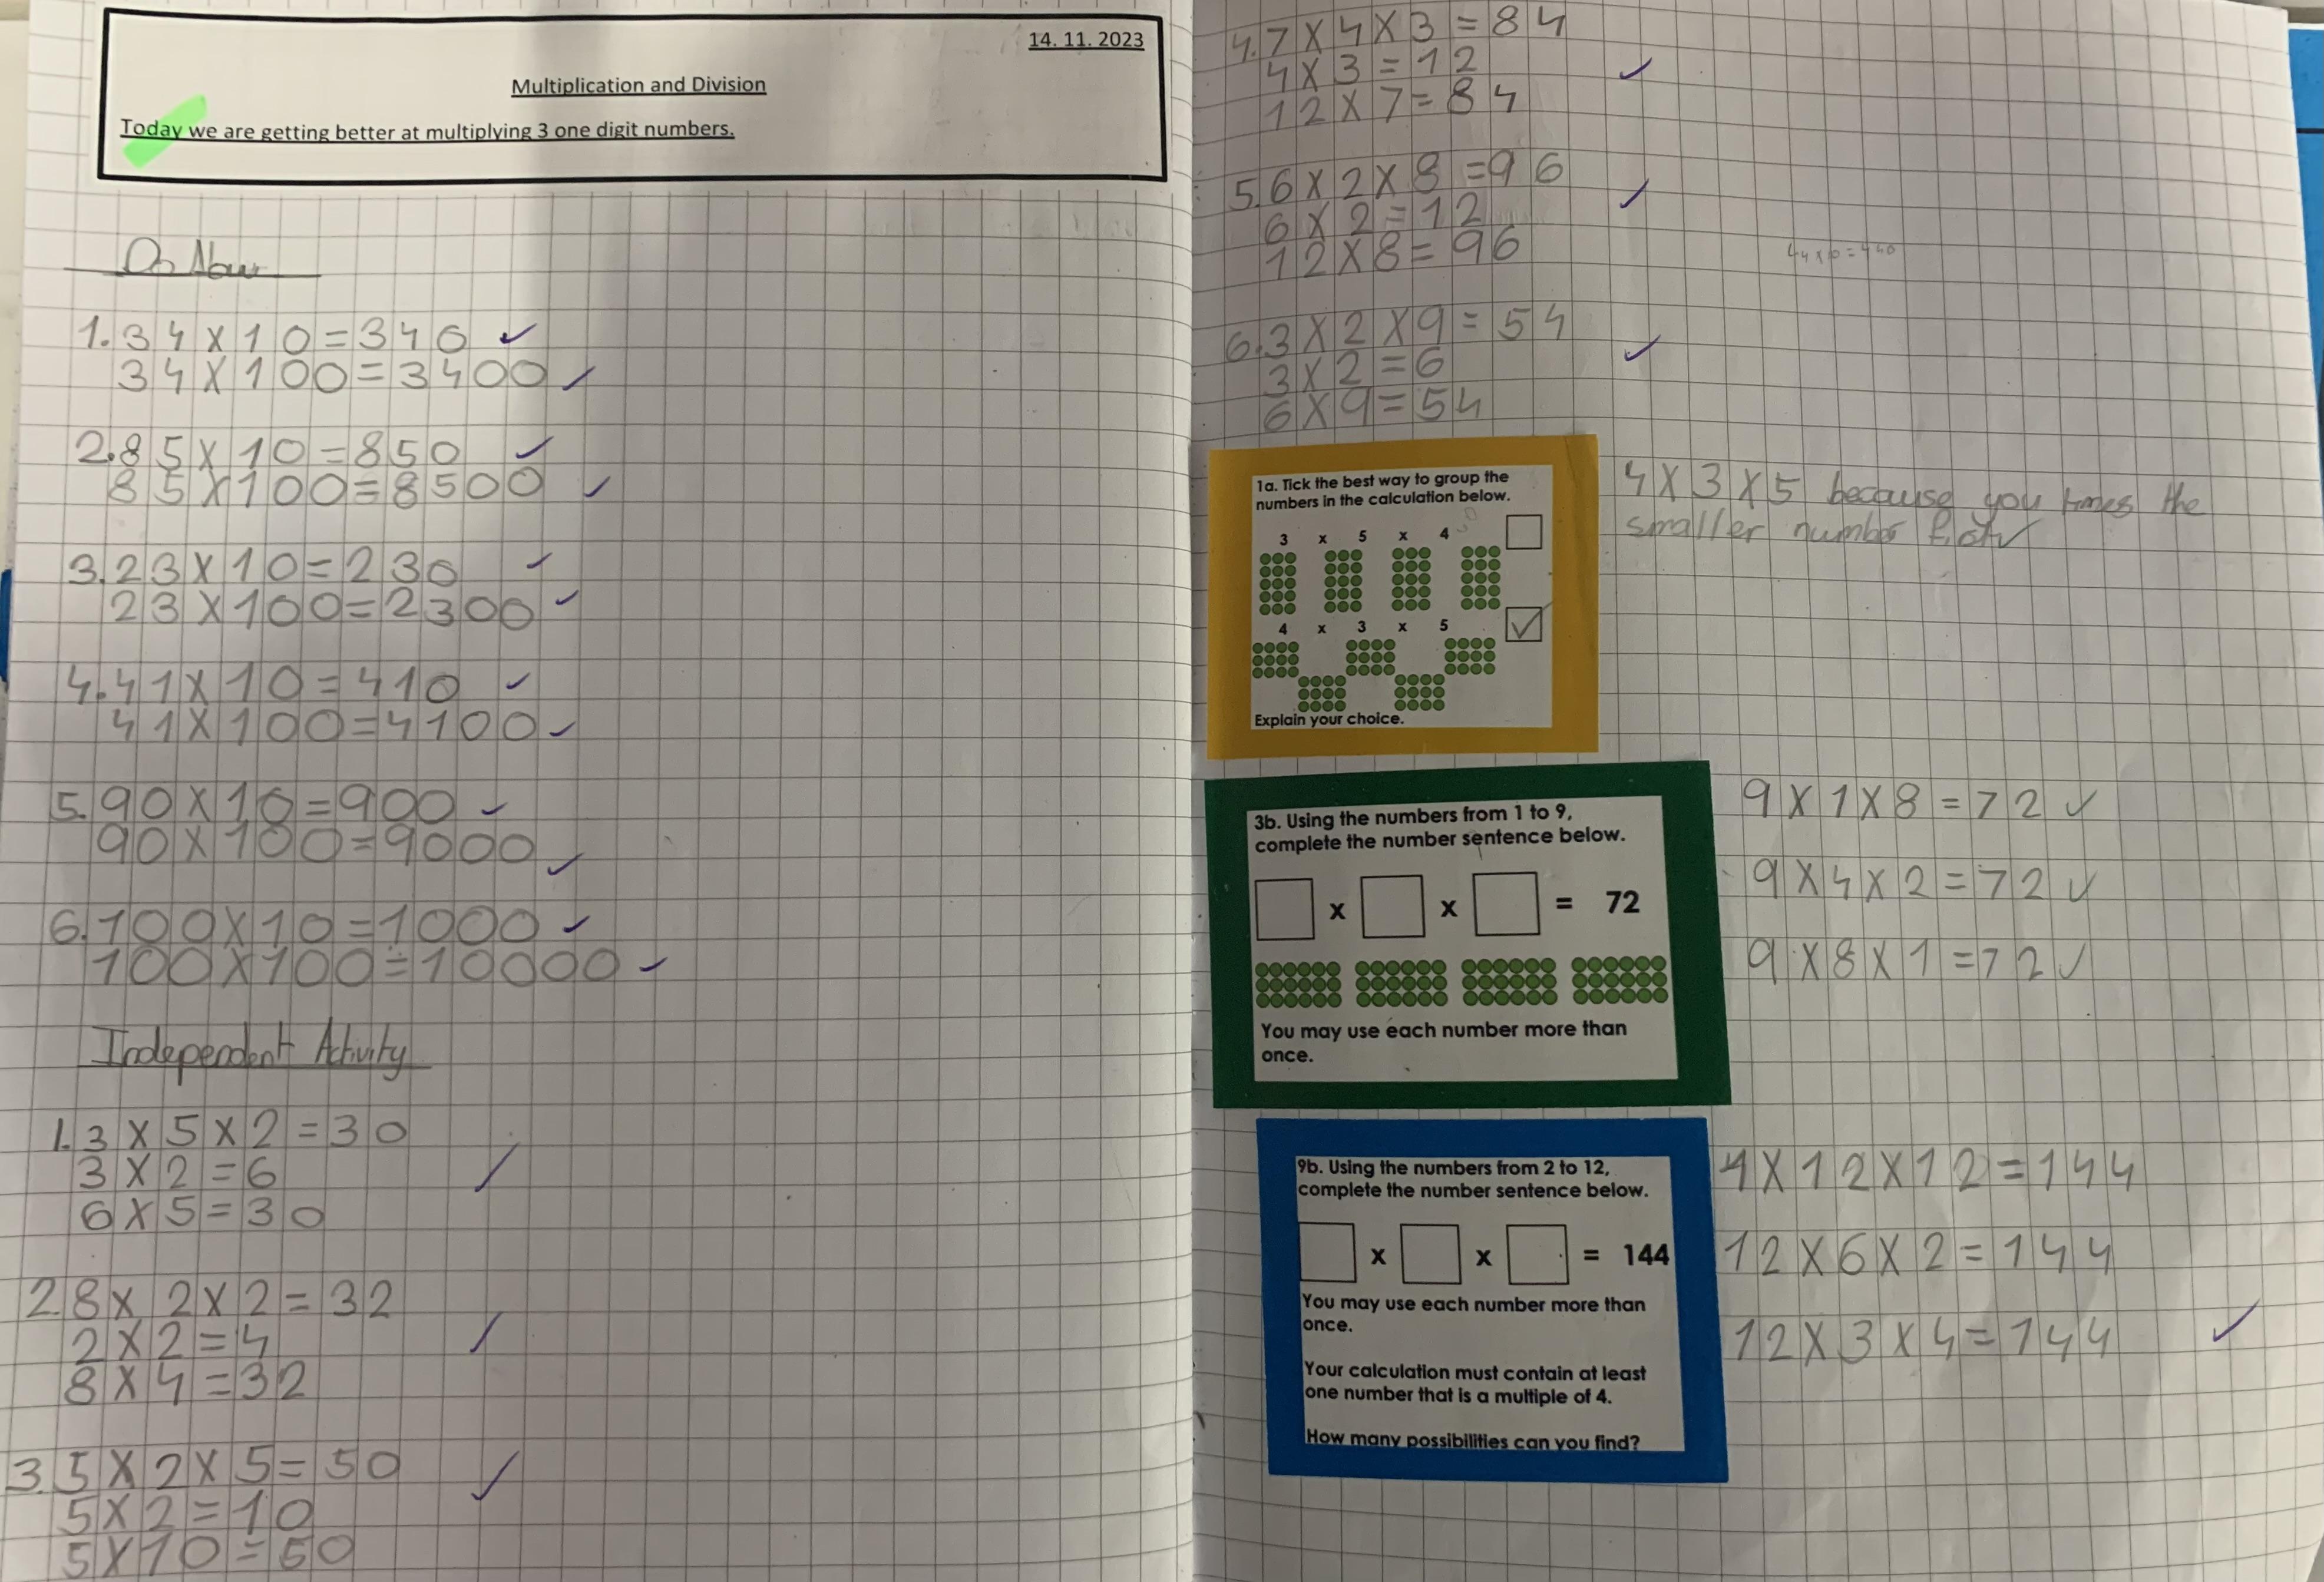 14. 11. 2023
Multiplication and Division
Today we are getting better at multiplying 3 one digit numbers.
Do Now
1. 34 x 10 = 340 ✓
34 x 100 = 3400 ✓
2. 85 x 10 = 850 ✓
85 x 100 = 8500 ✓
3. 23 x 10 = 230 ✓
23 x 100 = 2300 ✓
4. 41 x 10 = 410 ✓
41 x 100 = 4100 ✓
5. 90 x 10 = 900 ✓
90 x 100 = 9000 ✓
6. 100 x 10 = 1000 ✓
100 x 100 = 10000 ✓
Independent Activity
1. 3 x 5 x 2 = 30
3 x 2 = 6 ✓
6 x 5 = 30
2. 8 x 2 x 2 = 32
2 x 2 = 4 ✓
8 x 4 = 32
3. 5 x 2 x 5 = 50 ✓
5 x 2 = 10
5 x 10 = 50
4. 7 x 4 x 3 = 84
4 x 3 = 12 ✓
12 x 7 = 84
5. 6 x 2 x 8 = 96
6 x 2 = 12 ✓
12 x 8 = 96
44 x 10 = 440
6. 3 x 2 x 9 = 54
3 x 2 = 6 ✓
6 x 9 = 54
1a. Tick the best way to group the
numbers in the calculation below.
3 x 5 x 4
4 x 3 x 5 ✓
Explain your choice.
4 x 3 x 5 because you times the
smaller number first ✓
3b. Using the numbers from 1 to 9,
complete the number sentence below.
x x = 72
You may use each number more than
once.
9 x 1 x 8 = 72 ✓
9 x 4 x 2 = 72 ✓
9 x 8 x 1 = 72 ✓
9b. Using the numbers from 2 to 12,
complete the number sentence below.
x x = 144
You may use each number more than
once.
Your calculation must contain at least
one number that is a multiple of 4.
How many possibilities can you find?
1 x 12 x 12 = 144
12 x 6 x 2 = 144
12 x 3 x 4 = 144 ✓